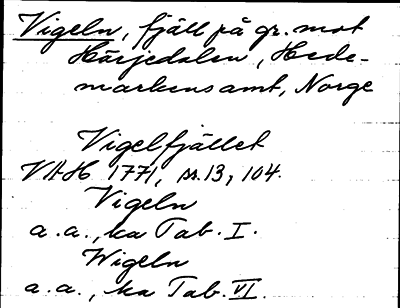 Vigeln, fjäll på gr. mot
Härjedalen, Hede-
markens amt, Norge
Vigelfjället
VAH 1771, s. 13, 104.
Vigeln
a.a., ka Tab. I.
Wigeln
a.a., ka Tab. VI.